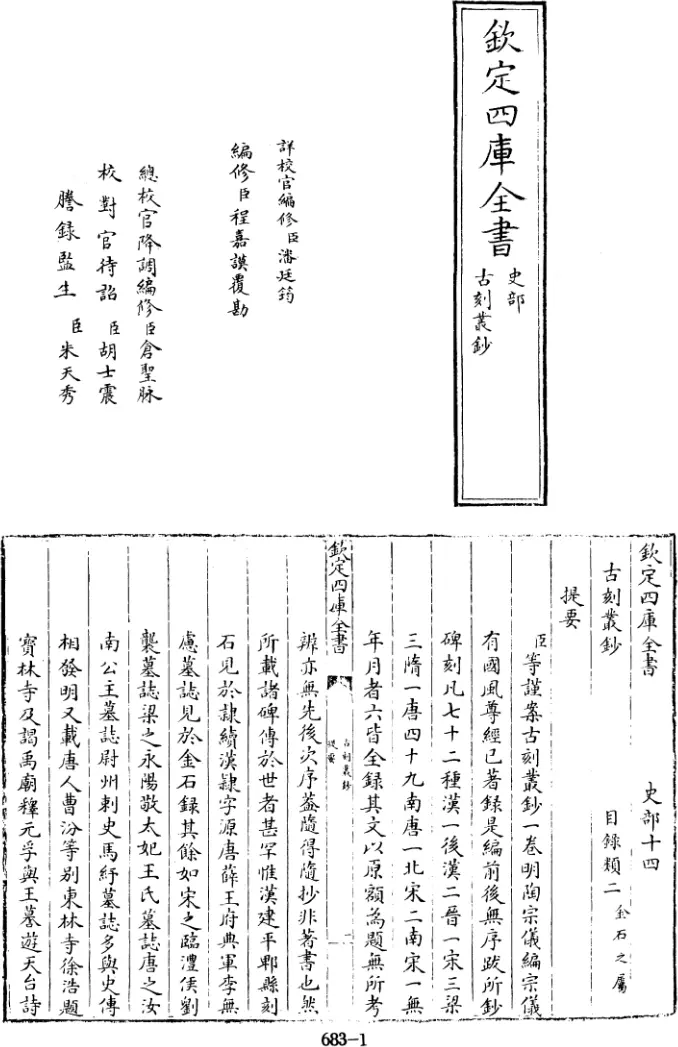 欽定四庫全書
史部
古刻叢鈔
詳校官編修臣潘廷筠
編修臣程嘉謨覆勘
總校官降調編修臣倉聖脉
校對官待詔臣胡士震
謄錄監生臣朱天秀
欽定四庫全書 史部十四
古刻叢鈔 目錄類二金石之屬
提要
臣等謹案古刻叢鈔一卷明陶宗儀編宗儀
有國風尊經已著錄是編前後無序跋所鈔
碑刻凡七十二種漢一後漢二晉一宋三梁
三隋一唐四十九南唐一北宋二南宋一無
年月者六皆全錄其文以原額為題無所考
欽定四庫全書
古刻叢鈔
提要
一
辨亦無先後次序葢隨得隨抄非著書也然
所載諸碑傳於世者甚罕惟漢建平郫縣刻
石見於隷續漢隷字源唐薛王府典軍李無
慮墓誌見於金石錄其餘如宋之臨澧侯劉
襲墓誌梁之永陽敬太妃王氏墓誌唐之汝
南公主墓誌尉州刺史馬紓墓誌多與史傳
相發明又載唐人曹汾等別東林寺徐浩題
寳林寺及謁禹廟釋元孚與王綦遊天台詩
683-1